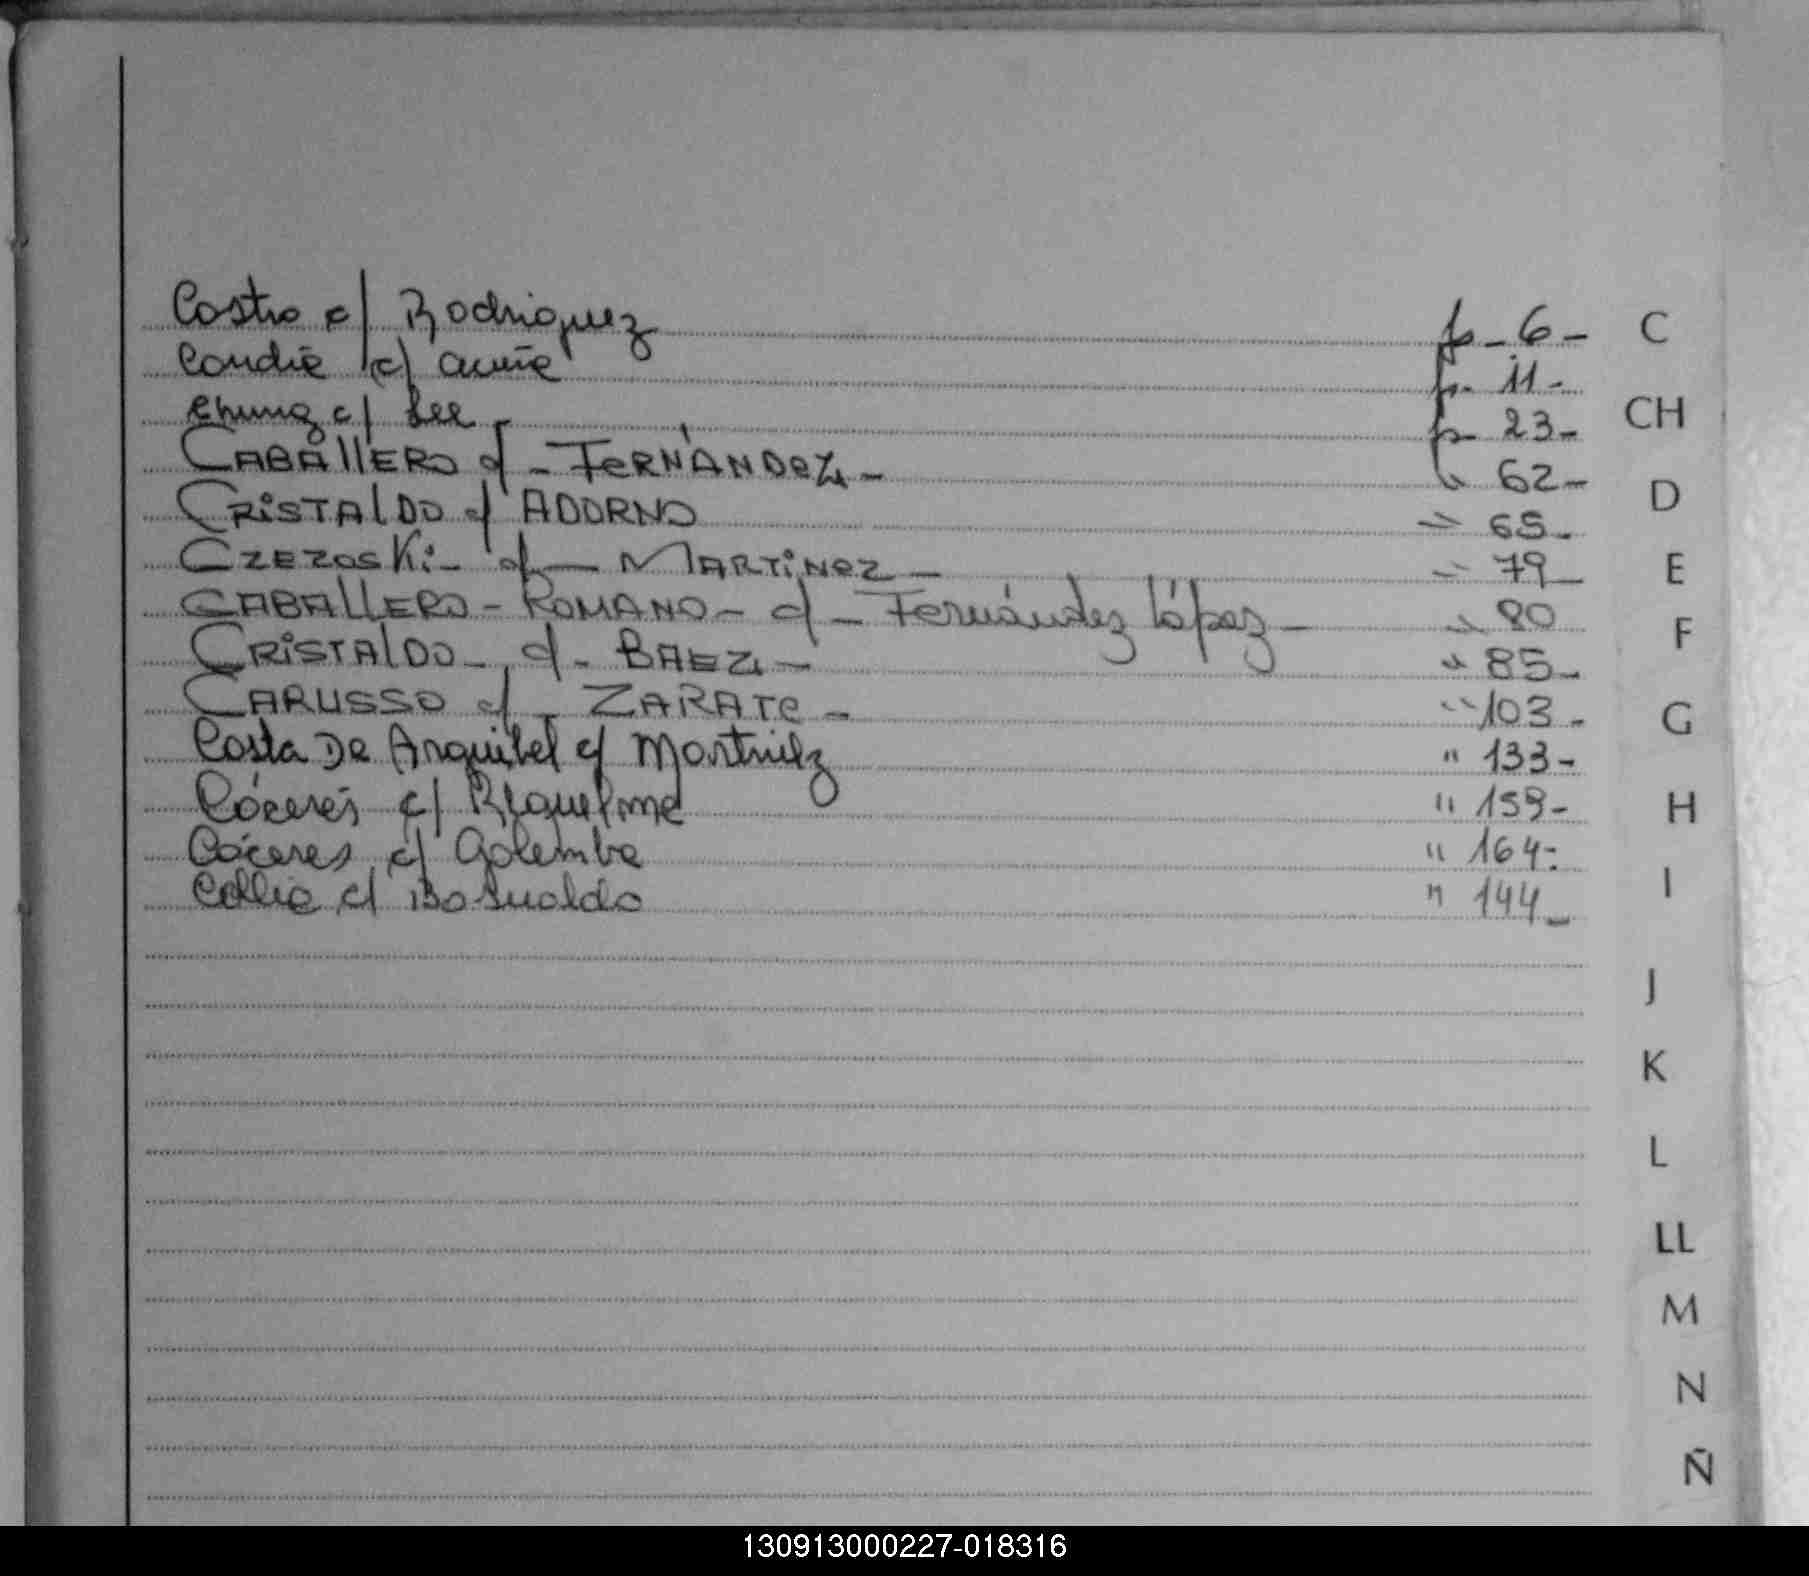 Castro c/ Rodriguez p - 6 - C
Candia c/ acuña p- 11 -
Chung c/ Lee p- 23 - CH
CABAllERO c/ - FeRNÁNDeZ - " 62 - D
CRiSTAlDO c/ ADORNO " 65 -
CZEZOSKi - c/ - MARTiNeZ - " 79 - E
CABAllERO - ROMANO - c/ - Fernández López - " 80 F
CRiSTAlDO - c/ - BAEZ - " 85 -
CARUSSO c/ - ZARATe - " 103 - G
Costa De Arquibel c/ Martinez " 133 -
Cáceres c/ Riquelme " 159 - H
Cáceres c/ Golemba " 164 -
Collia c/ Basualdo " 144 - I
J
K
L
LL
M
N
Ñ
130913000227-018316